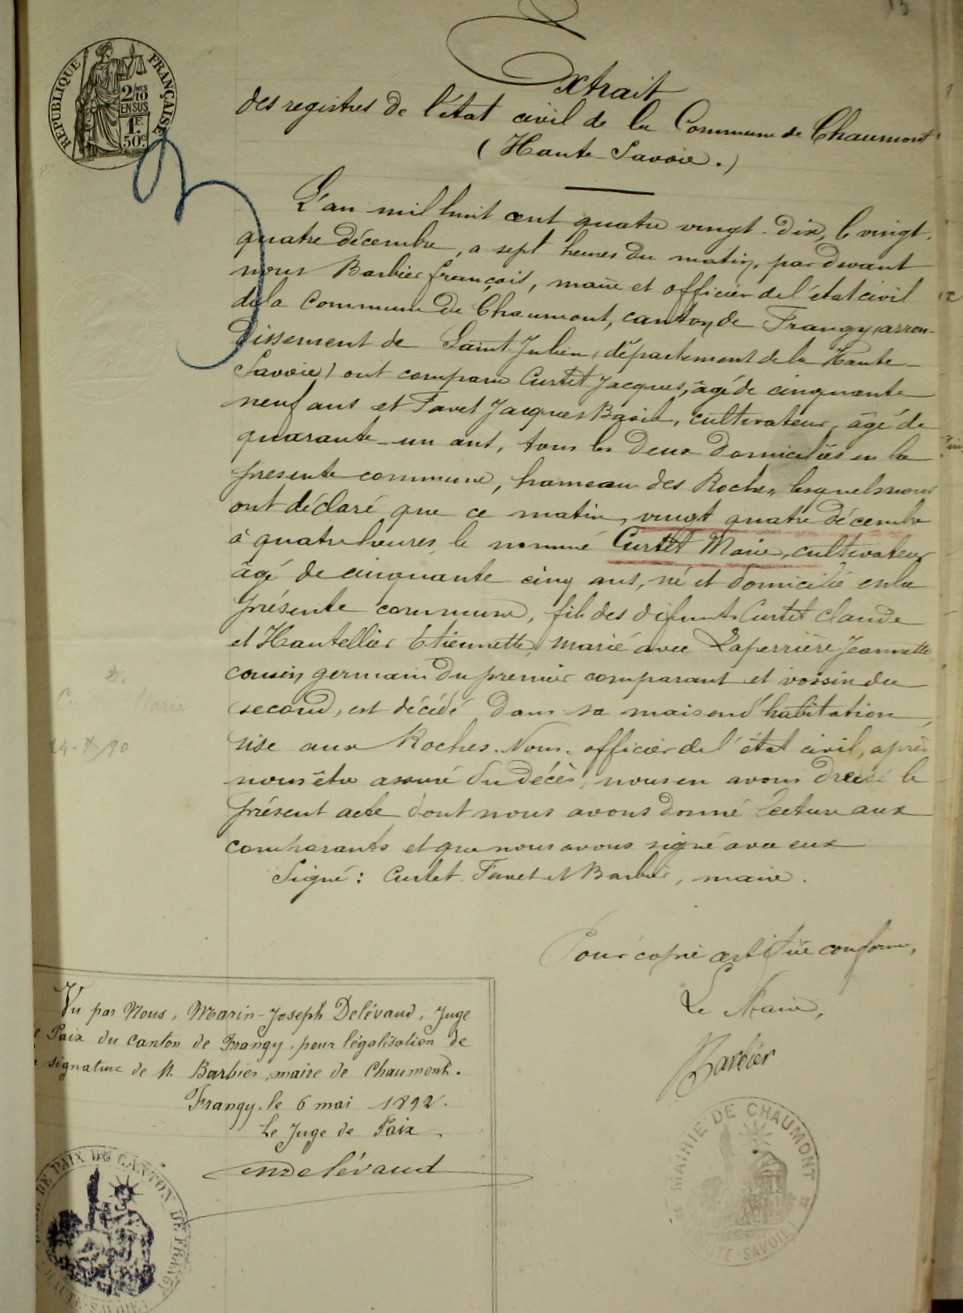 15
RÉPUBLIQUE FRANÇAISE
2/10
EN SUS
1F
50c
Extrait
des registres de l'état civil de la Commune de Chaumont
(Haute-Savoie.)
L'an mil huit cent quatre vingt-dix, le vingt-
quatre décembre, à sept heures du matin, par devant
nous Barbier françois, maire et officier de l'état civil
de la Commune de Chaumont, canton de Frangy, arron-
dissement de Saint Julien, (département de la Haute-
Savoie) ont comparu Curtet Jacques, âgé de cinquante
neuf ans et Favet Jacques Basile, cultivateur, âgé de
quarante-un ans, tous les deux domiciliés en la
présente commune, hameau des Roches, lesquels nous
ont déclaré que ce matin, vingt quatre décembre
à quatre heures, le nommé Curtet Marie, cultivateur
âgé de cinquante cinq ans, né et domicilié en la
présente commune, fils des défunts Curtet Claude
et Hantellier Etiennette, marié avec Laperrière Jeannette
cousin germain du premier comparant et voisin du
second, est décédé dans sa maison d'habitation
sise aux Roches. Nous, officier de l'état civil, après
nous être assuré du décès, nous en avons dressé le
présent acte dont nous avons donné lecture aux
comparants et que nous avons signé avec eux
Signé: Curtet Favet et Barbier, maire.
Pour copie certifiée conforme,
Le Maire,
Barbier
MAIRIE DE CHAUMONT
HAUTE-SAVOIE
24-X/90
Vu par Nous, Marin-Joseph Delévaud, Juge
Paix du Canton de Frangy, pour légalisation de
signature de M. Barbier, maire de Chaumont.
Frangy, le 6 mai 1892.
Le Juge de Paix,
Delévaud
DE PAIX DU CANTON DE FRANGY
HAUTE-SAVOIE